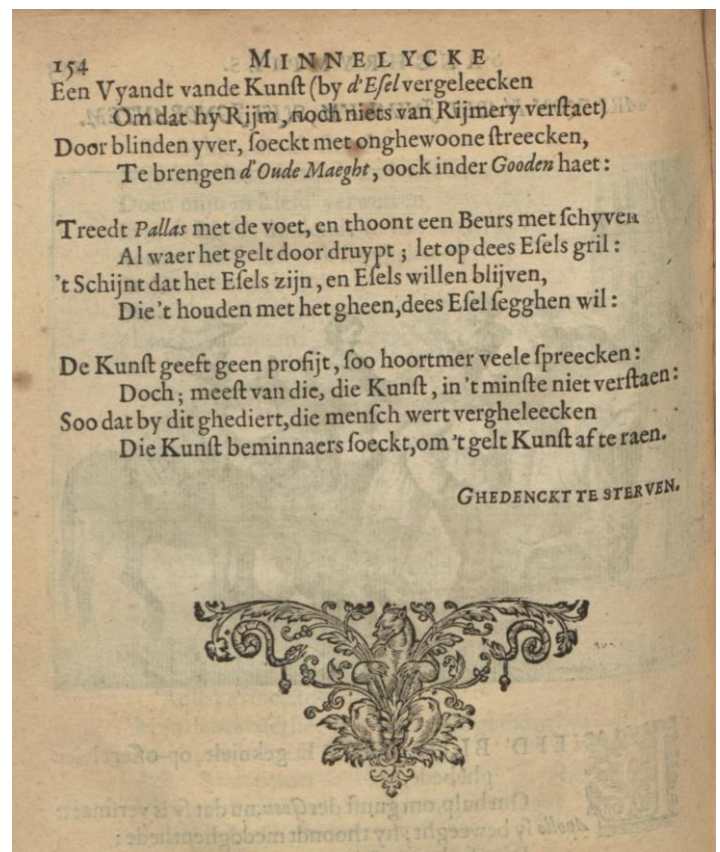 154 MINNELYCKE
Een Vyandt vande Kunſt (by d'Eſel vergeleecken
Om dat hy Rijm, noch niets van Rijmery verſtaet)
Door blinden yver, ſoeckt met onghewoone ſtreecken,
Te brengen d'Oude Maeght, oock inder Gooden haet:
Treedt Pallas met de voet, en thoont een Beurs met ſchyven
Al waer het gelt door druypt; let op dees Eſels gril:
't Schijnt dat het Eſels zijn, en Eſels willen blijven,
Die't houden met het gheen, dees Eſel ſegghen wil:
De Kunſt geeft geen profijt, ſoo hoortmer veele ſpreecken:
Doch; meeſt van die, die Kunſt, in 't minſte niet verſtaen:
Soo dat by dit ghediert, die menſch wert vergheleecken
Die Kunſt beminnaers ſoeckt, om 't gelt Kunſt af te raen.
GHEDENCKT TE STERVEN.